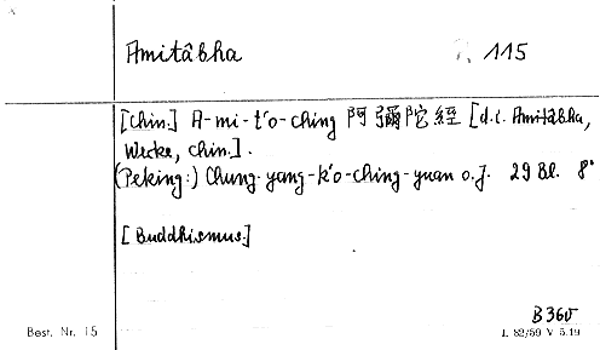 Amitâbha 115
[Chin.] A-mi-t'o-ching 阿彌陀經 [d.i. Amitâbha,
Werke, chin.].
(Peking:) Chung-yang-k'o-ching-yuan o.J. 29 Bl. 8°
[Buddhismus.]
B 360
Best. Nr. 15 L 82/59 V 5.19